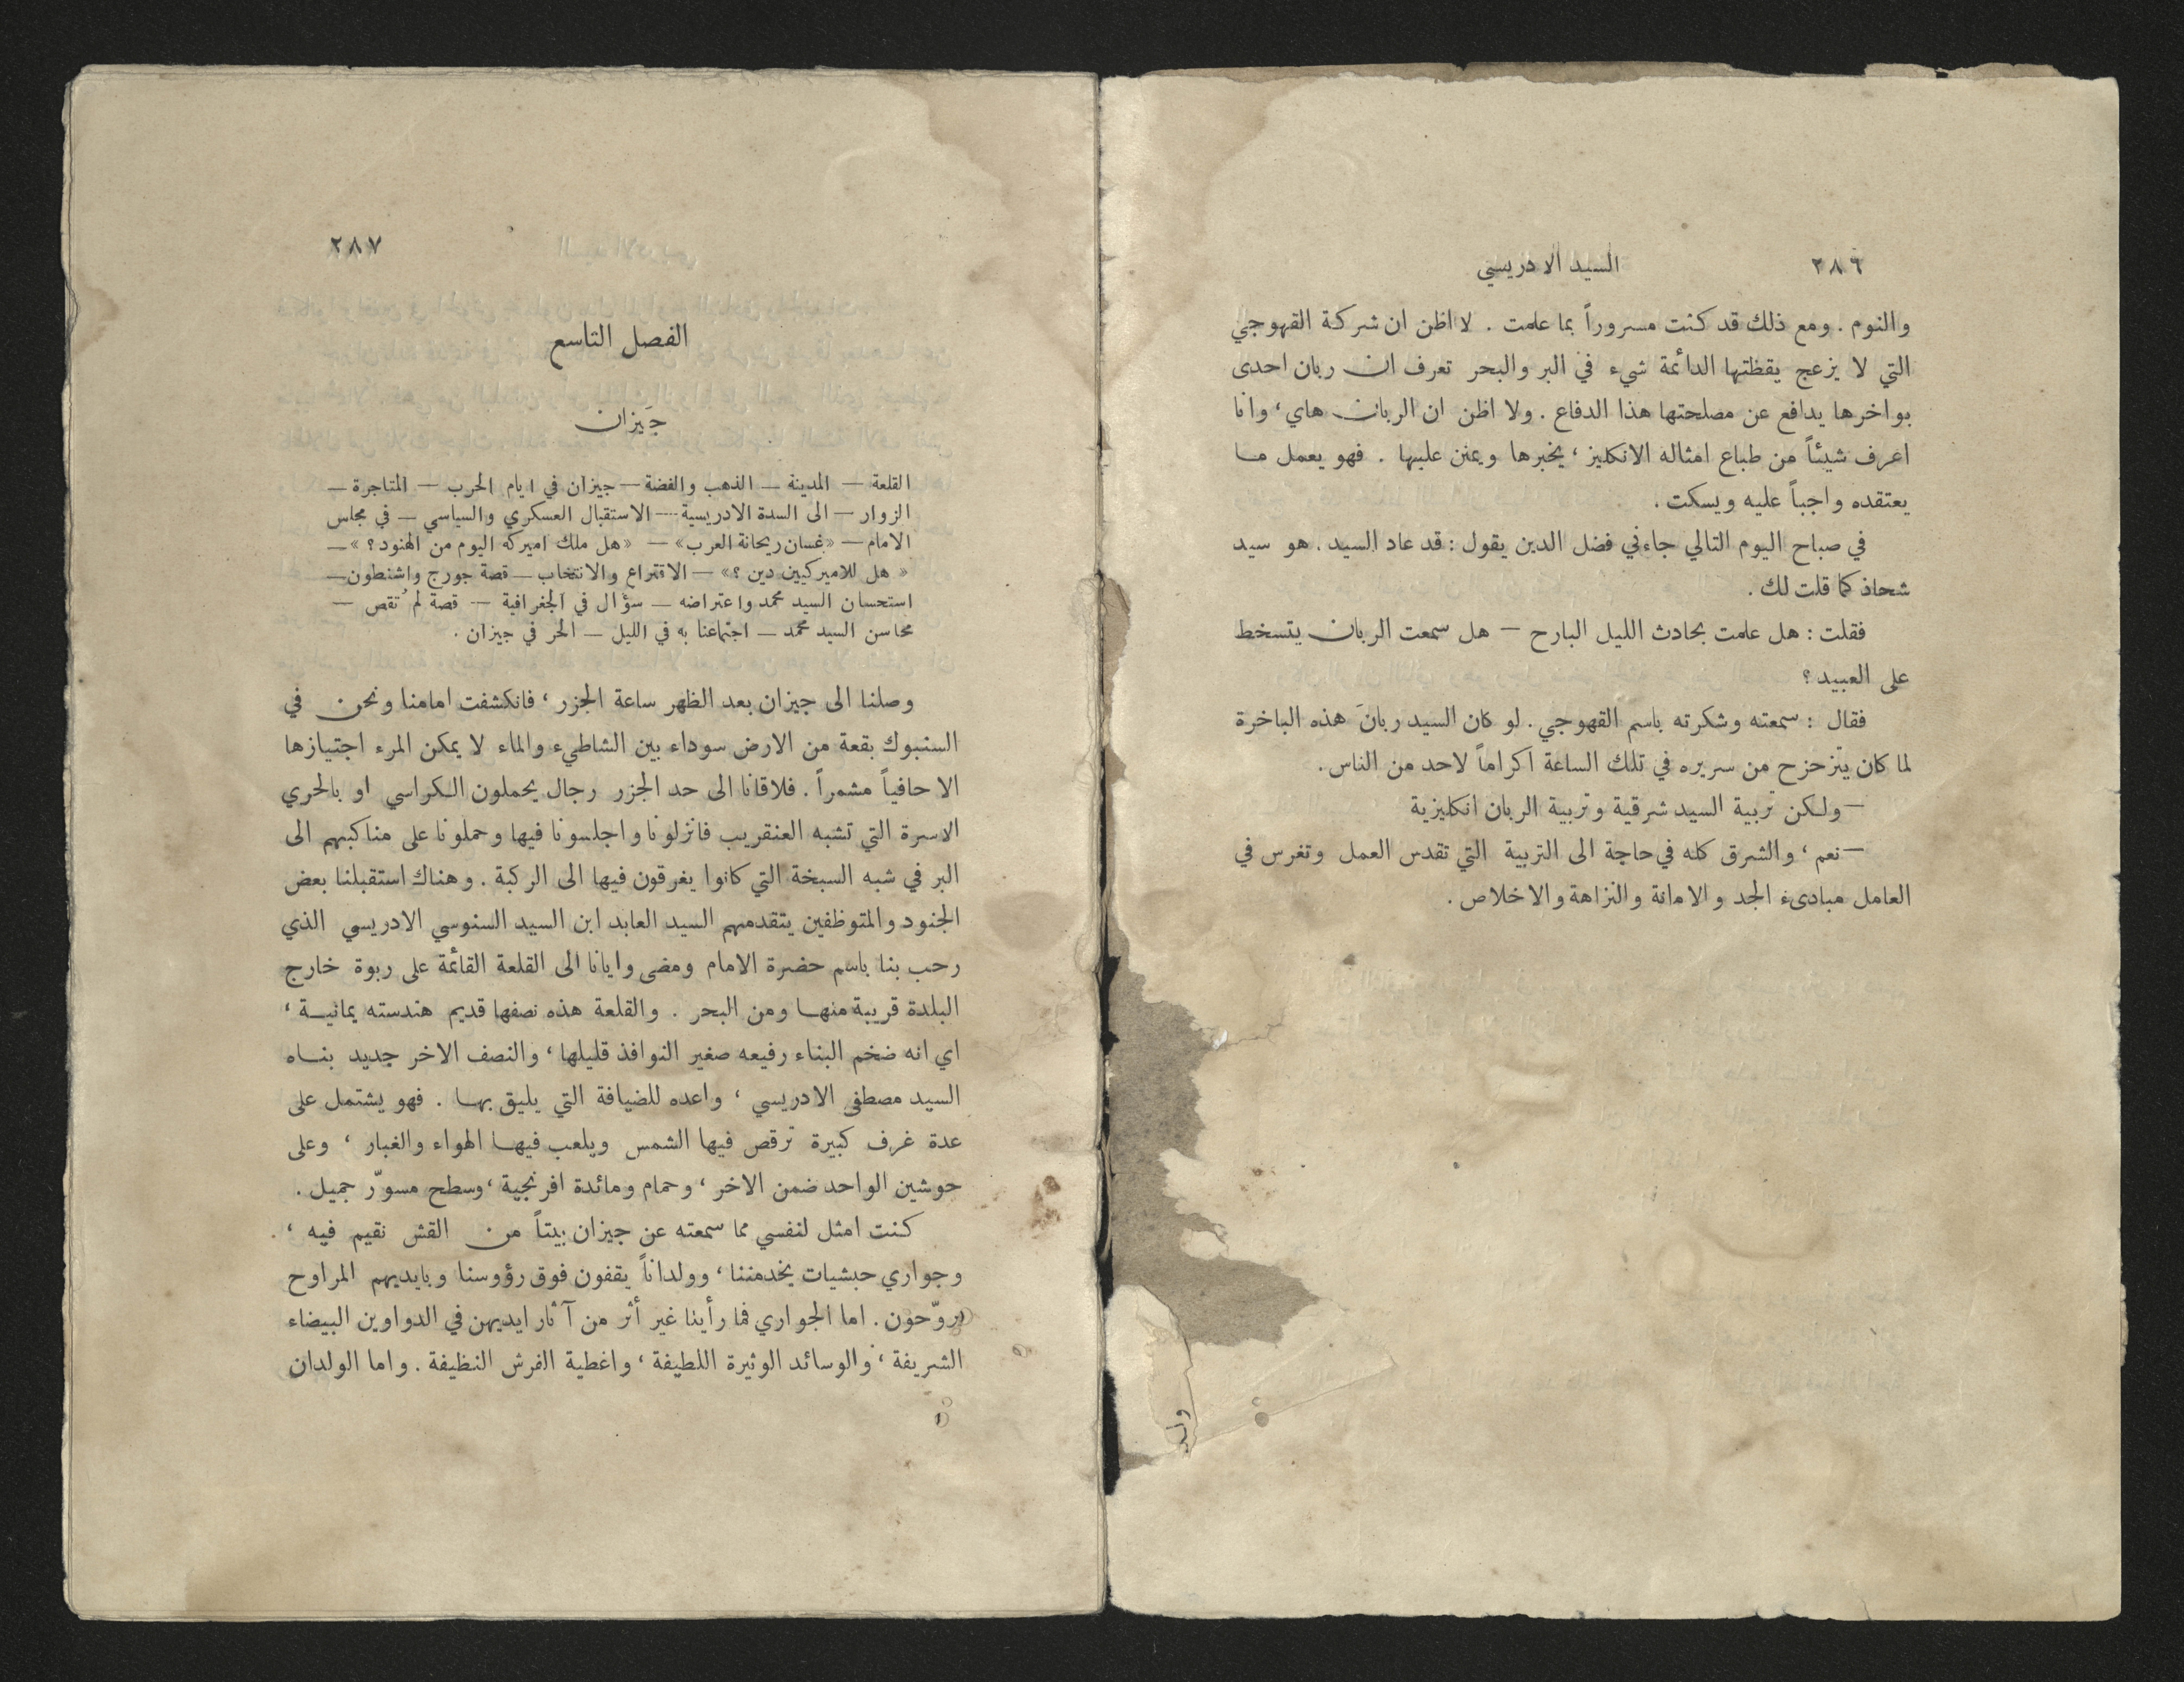 ٢٨٦ السيد الادريسي
والنوم . ومع ذلك قد كنت مسروراً بما علمت . لا اظن ان شركة القهوجي
التي لا يزعج يقظتها الدائمة شيء في البر والبحر تعرف ان ربان احدى
بواخرها يدافع عن مصلحتها هذا الدفاع . ولا اظن ان الربان هاي ، وانا
اعرف شيئاً من طباع امثاله الانكليز ، يخبرها ويمنن عليها . فهو يعمل ما
يعتقده واجباً عليه ويسكت .
في صباح اليوم التالي جاءني فضل الدين يقول : قد عاد السيد . هو سيد
شحاذ كما قلت لك .
فقلت : هل علمت بحادث الليل البارح — هل سمعت الربان يتسخط
على العبيد ؟
فقال : سمعته وشكرته باسم القهوجي . لو كان السيد ربانَ هذه الباخرة
لما كان يتزحزح من سريره في تلك الساعة اكراماً لاحد من الناس .
— ولكن تربية السيد شرقية وتربية الربان انكليزية
— نعم ، والشرق كله في حاجة الى التربية التي تقدس العمل وتغرس في
العامل مبادىء الجد والامانة والنزاهة والاخلاص .
ولد
٢٨٧
الفصل التاسع
جَيزان
القلعة — المدينة — الذهب والفضة — جيزان في ايام الحرب — المتاجرة —
الزوار — الى السدة الادريسية — الاستقبال العسكري والسياسي — في مجلس
الامام — «غسان ريحانة العرب» — «هل ملك اميركه اليوم من الهنود ؟» —
« هل للاميركيين دين ؟» — الاقتراع والانتخاب — قصة جورج واشنطون —
استحسان السيد محمد واعتراضه — سؤال في الجغرافية — قصة لم تُقص —
محاسن السيد محمد — اجتماعنا به في الليل — الحر في جيزان .
وصلنا الى جيزان بعد الظهر ساعة الجزر ، فانكشفت امامنا ونحن في
السنبوك بقعة من الارض سوداء بين الشاطيء والماء لا يمكن المرء اجتيازها
الا حافياً مشمراً . فلاقانا الى حد الجزر رجال يحملون الكراسي او بالحري
الاسرة التي تشبه العنقريب فانزلونا واجلسونا فيها وحملونا على مناكبهم الى
البر في شبه السبخة التي كانوا يغرقون فيها الى الركبة . وهناك استقبلنا بعض
الجنود والمتوظفين يتقدمهم السيد العابد ابن السيد السنوسي الادريسي الذي
رحب بنا باسم حضرة الامام ومضى وايانا الى القلعة القائمة على ربوة خارج
البلدة قريبة منها ومن البحر . والقلعة هذه نصفها قديم هندسته يمانية ،
اي انه ضخم البناء رفيعه صغير النوافذ قليلها ، والنصف الاخر جديد بناه
السيد مصطفى الادريسي ، واعده للضيافة التي يليق بها . فهو يشتمل على
عدة غرف كبيرة ترقص فيها الشمس ويلعب فيها الهواء والغبار ، وعلى
حوشين الواحد ضمن الاخر ، وحمام ومائدة افرنجية ، وسطح مسوّر جميل .
كنت امثل لنفسي مما سمعته عن جيزان بيتاً من القش نقيم فيه ،
وجواري حبشيات يخدمننا ، وولداناً يقفون فوق رؤوسنا وبايديهم المراوح
يروّحون . اما الجواري فما رأينا غير أثر من آثار ايديهن في الدواوين البيضاء
الشريفة ، والوسائد الوثيرة اللطيفة ، واغطية الفرش النظيفة . واما الولدان